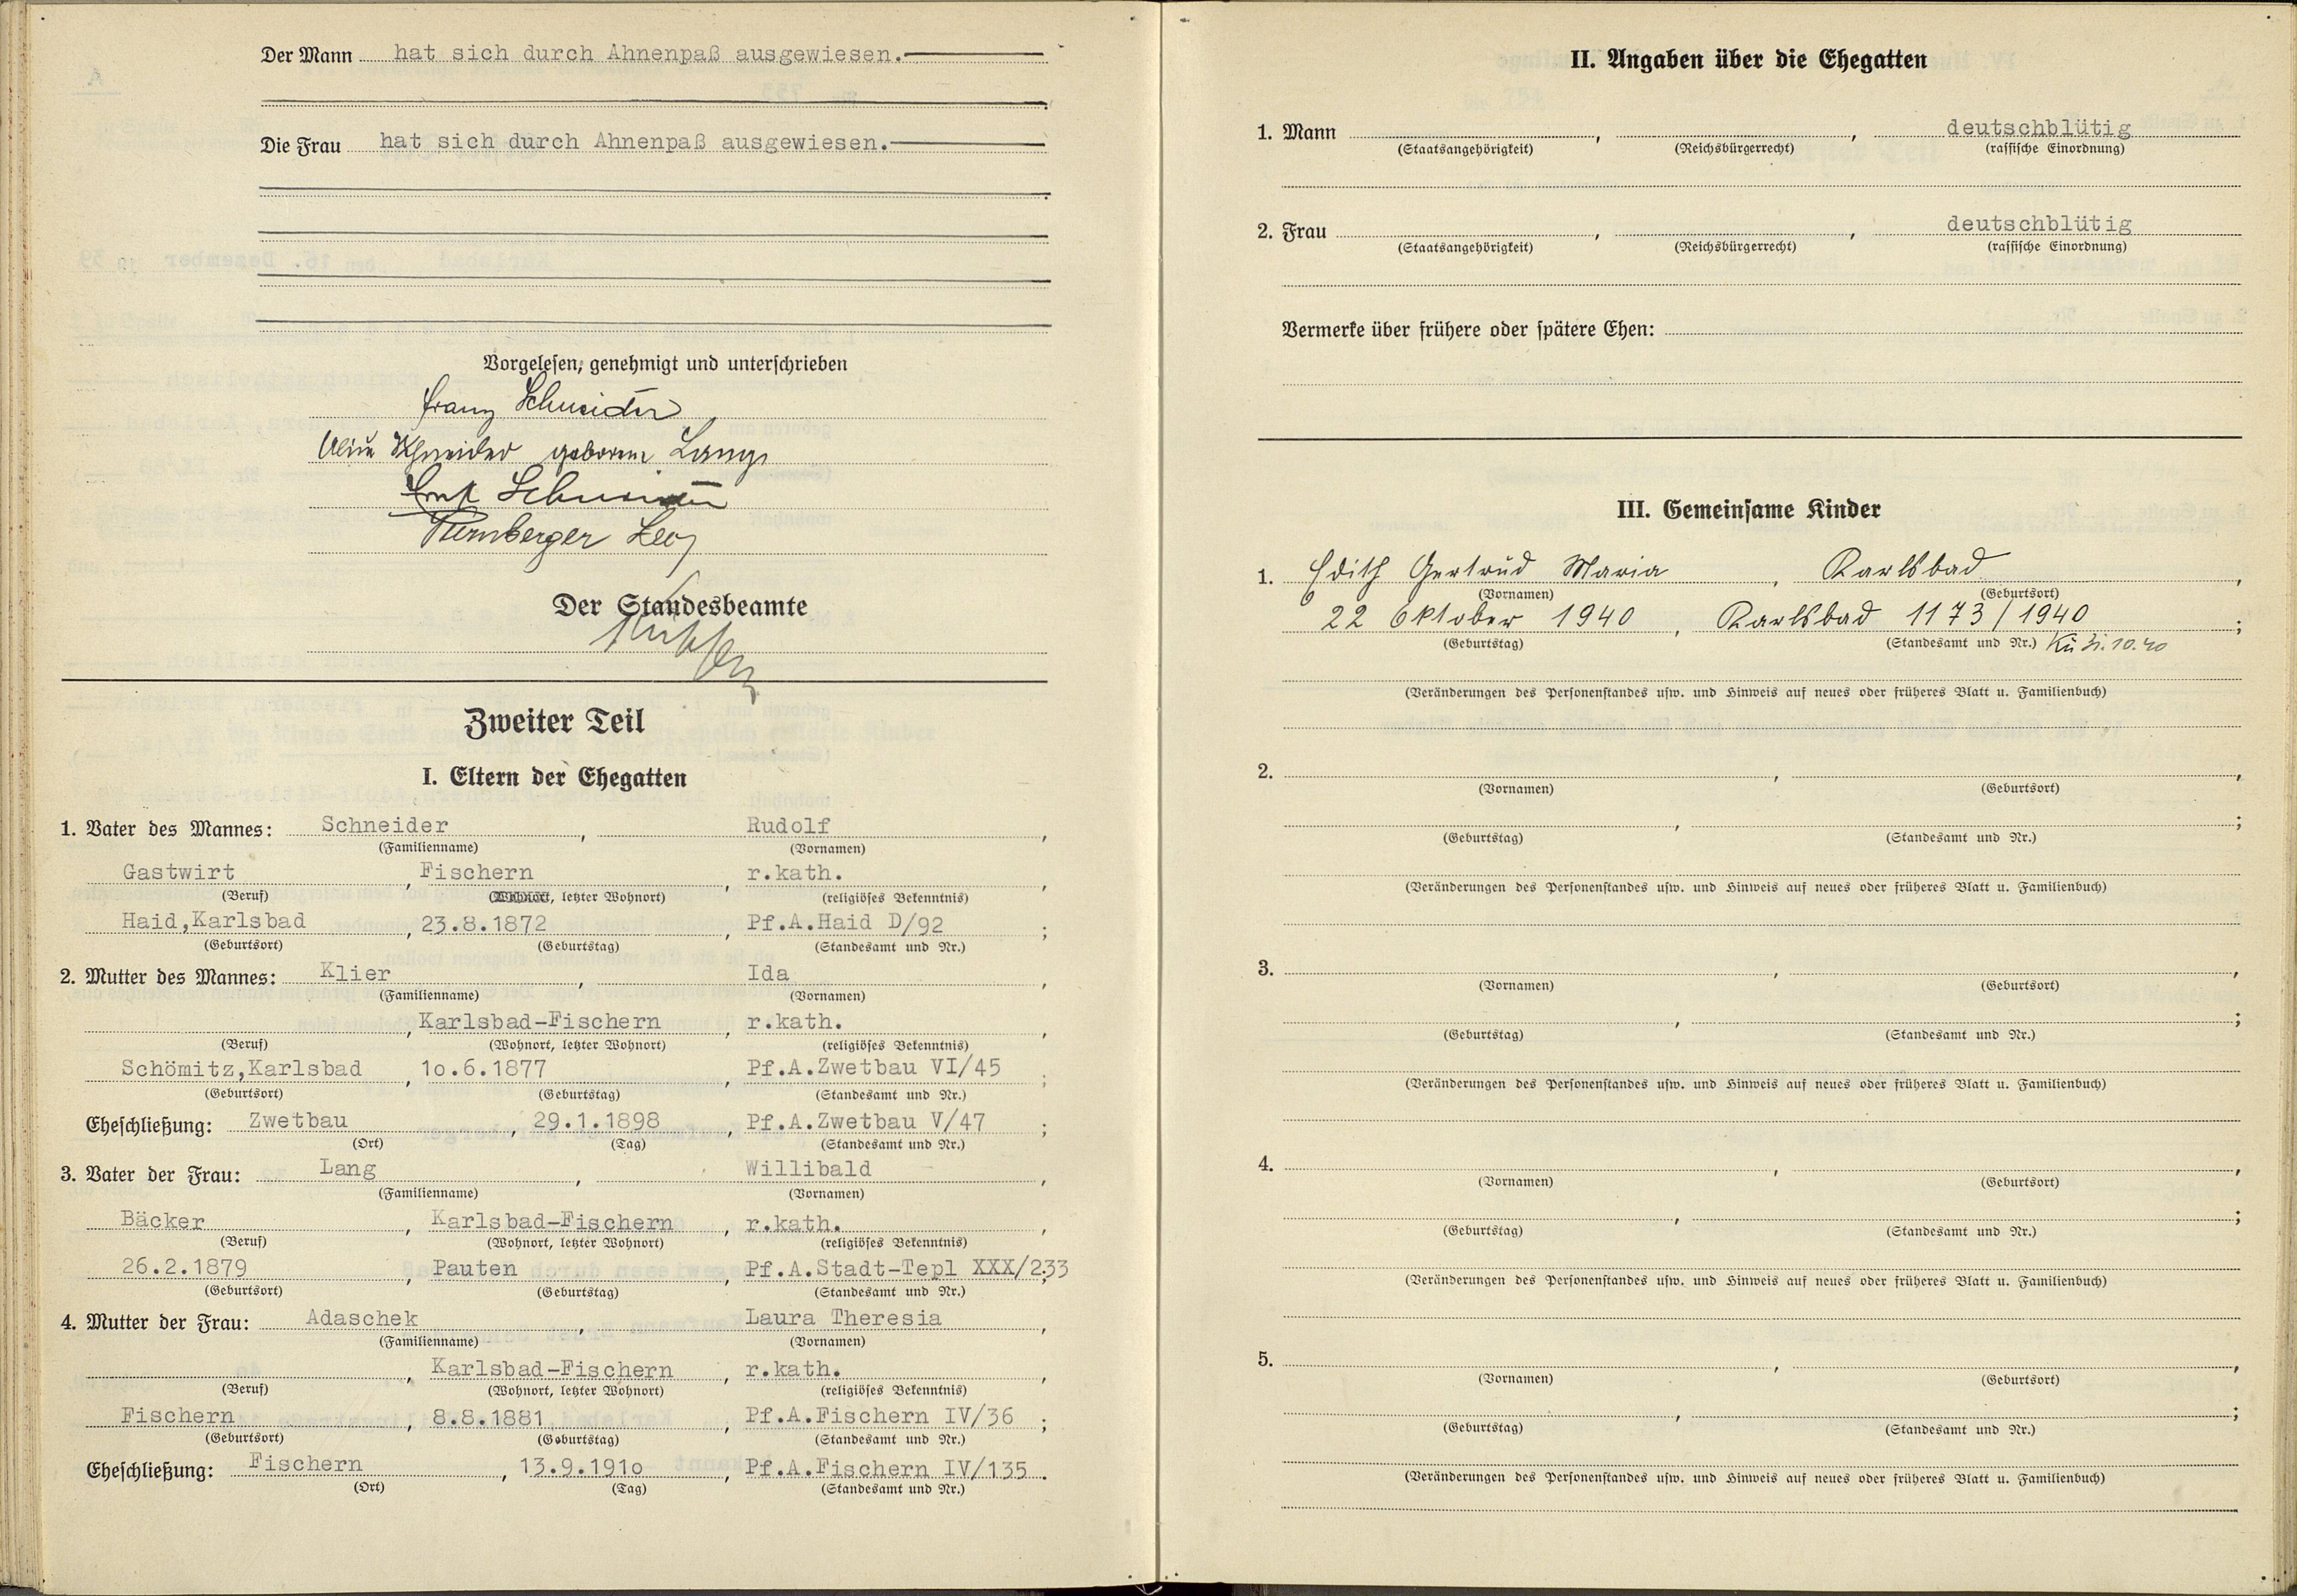 Der Mann hat sich durch Ahnenpaß ausgewiesen.
Die Frau hat sich durch Ahnenpaß ausgewiesen.
Vorgelesen, genehmigt und unterschrieben
Franz Schneider
Schneider geborene Lang
Ernst Schneider
Nürnberger Leo
Der Standesbeamte
Zweiter Teil
I. Eltern der Ehegatten
1. Vater des Mannes: Schneider, Rudolf,
(Familienname) (Vornamen)
Gastwirt, Fischern, r.kath.,
(Beruf) (Wohnort, letzter Wohnort) (religiöses Bekenntnis)
Haid,Karlsbad, 23.8.1872, Pf.A.Haid D/92;
(Geburtsort) (Geburtstag) (Standesamt und Nr.)
2. Mutter des Mannes: Klier, Ida,
(Familienname) (Vornamen)
, Karlsbad-Fischern, r.kath.,
(Beruf) (Wohnort, letzter Wohnort) (religiöses Bekenntnis)
Schömitz,Karlsbad, 1o.6.1877, Pf.A.Zwetbau VI/45;
(Geburtsort) (Geburtstag) (Standesamt und Nr.)
Eheschließung: Zwetbau, 29.1.1898, Pf.A.Zwetbau V/47;
(Ort) (Tag) (Standesamt und Nr.)
3. Vater der Frau: Lang, Willibald,
(Familienname) (Vornamen)
Bäcker, Karlsbad-Fischern, r.kath.,
(Beruf) (Wohnort, letzter Wohnort) (religiöses Bekenntnis)
26.2.1879, Pauten, Pf.A.Stadt-Tepl XXX/233;
(Geburtsort) (Geburtstag) (Standesamt und Nr.)
4. Mutter der Frau: Adaschek, Laura Theresia,
(Familienname) (Vornamen)
, Karlsbad-Fischern, r.kath.,
(Beruf) (Wohnort, letzter Wohnort) (religiöses Bekenntnis)
Fischern, 8.8.1881, Pf.A.Fischern IV/36;
(Geburtsort) (Geburtstag) (Standesamt und Nr.)
Eheschließung: Fischern, 13.9.191o, Pf.A.Fischern IV/135.
(Ort) (Tag) (Standesamt und Nr.)
II. Angaben über die Ehegatten
1. Mann , , deutschblütig
(Staatsangehörigkeit) (Reichsbürgerrecht) (rassische Einordnung)
2. Frau , , deutschblütig
(Staatsangehörigkeit) (Reichsbürgerrecht) (rassische Einordnung)
Vermerke über frühere oder spätere Ehen:
III. Gemeinsame Kinder
1. Edith Gertrud Maria, Karlsbad,
(Vornamen) (Geburtsort)
22 Oktober 1940, Karlsbad 1173/1940;
(Geburtstag) (Standesamt und Nr.) Kü 31.10.40
(Veränderungen des Personenstandes usw. und Hinweis auf neues oder früheres Blatt u. Familienbuch)
2. , ,
(Vornamen) (Geburtsort)
, ;
(Geburtstag) (Standesamt und Nr.)
(Veränderungen des Personenstandes usw. und Hinweis auf neues oder früheres Blatt u. Familienbuch)
3. , ,
(Vornamen) (Geburtsort)
, ;
(Geburtstag) (Standesamt und Nr.)
(Veränderungen des Personenstandes usw. und Hinweis auf neues oder früheres Blatt u. Familienbuch)
4. , ,
(Vornamen) (Geburtsort)
, ;
(Geburtstag) (Standesamt und Nr.)
(Veränderungen des Personenstandes usw. und Hinweis auf neues oder früheres Blatt u. Familienbuch)
5. , ,
(Vornamen) (Geburtsort)
, ;
(Geburtstag) (Standesamt und Nr.)
(Veränderungen des Personenstandes usw. und Hinweis auf neues oder früheres Blatt u. Familienbuch)